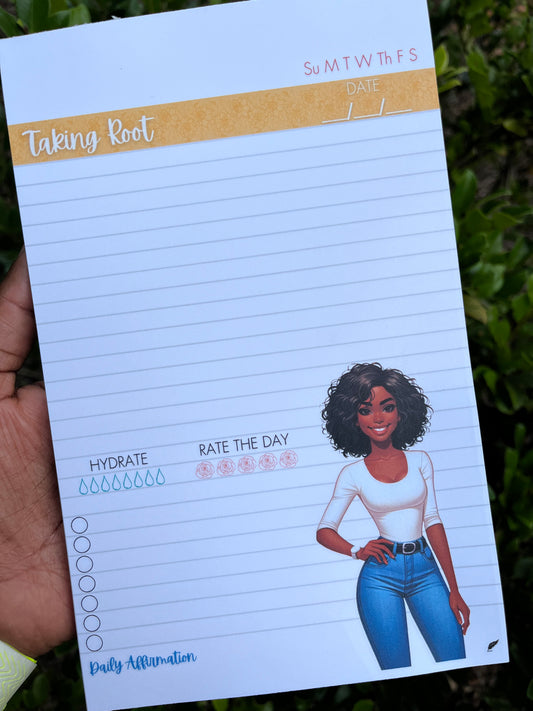 Su M T W Th F S
DATE
__/__/__
Taking Root
HYDRATE
RATE THE DAY
Daily Affirmation